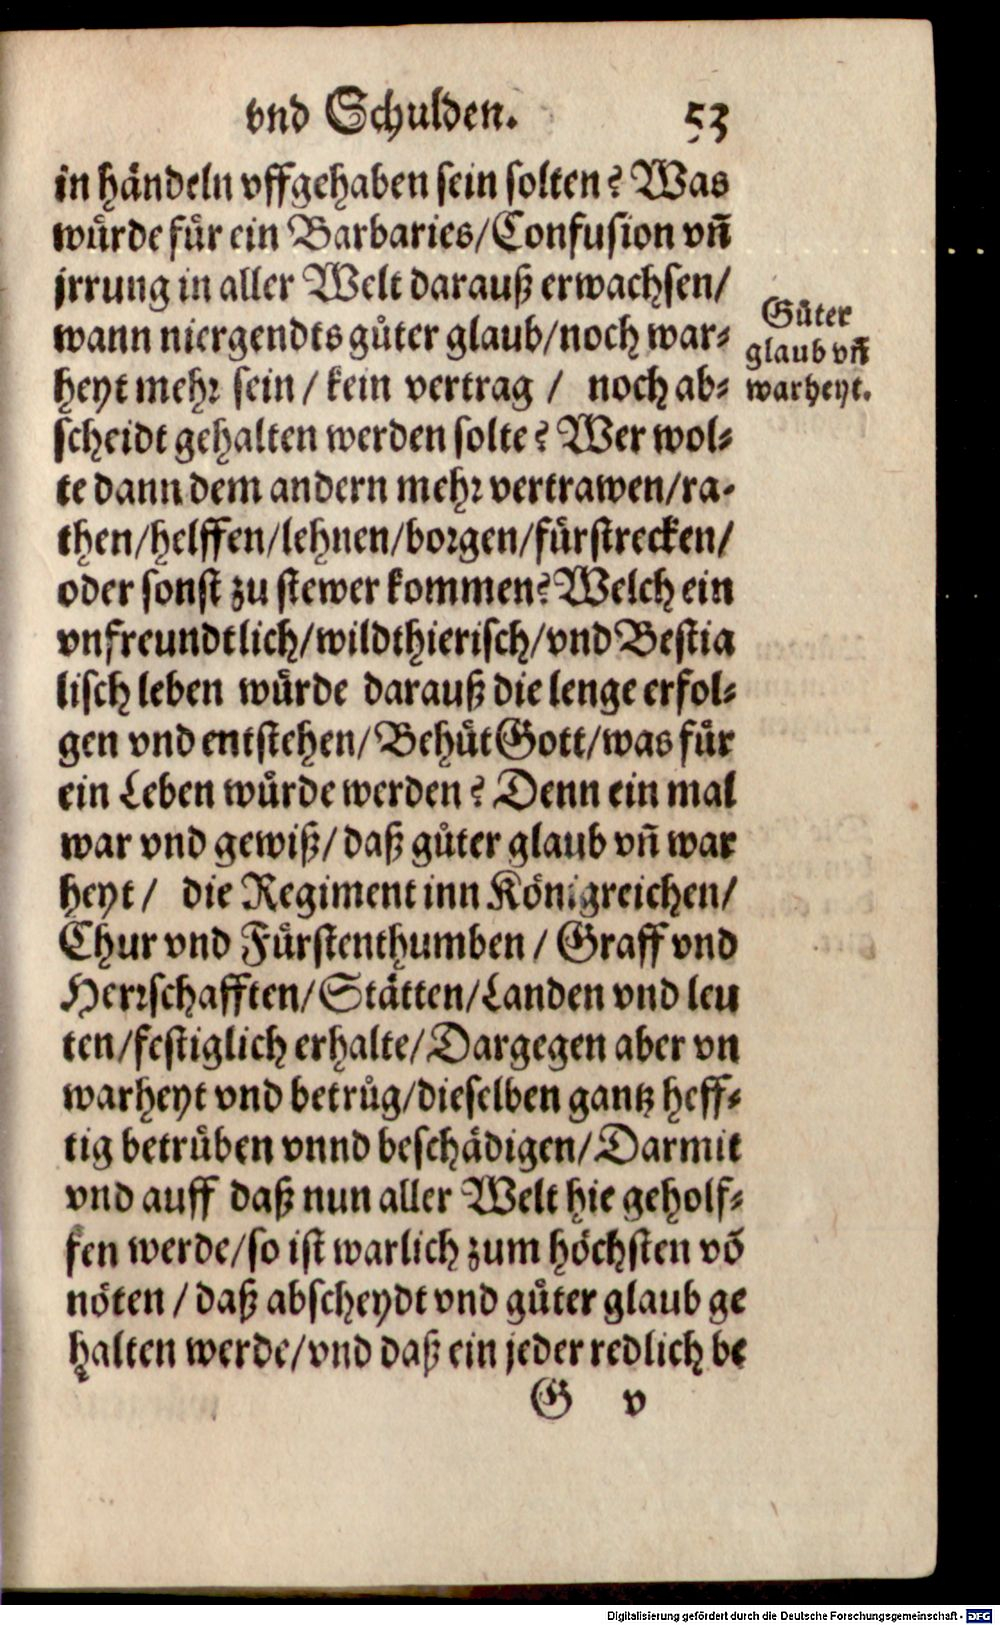 vnd Schulden. 53
in händeln vffgehaben sein solten? Was
würde für ein Barbaries/Confusion vñ
jrrung in aller Welt darauß erwachsen/
wann niergendts gůter glaub/noch war⸗
heyt mehr sein / kein vertrag / noch ab⸗
scheidt gehalten werden solte? Wer wol⸗
te dann dem andern mehr vertrawen/ra⸗
then/helffen/lehnen/borgen/fürstrecken/
oder sonst zu stewer kommen? Welch ein
vnfreundtlich/wildthierisch/vnd Bestia
lisch leben würde darauß die lenge erfol⸗
gen vnd entstehen/Behüt Gott/was für
ein Leben würde werden? Denn ein mal
war vnd gewiß/daß gůter glaub vñ war
heyt / die Regiment inn Königreichen/
Chur vnd Fürstenthumben / Graff vnd
Herrschafften/Stätten/Landen vnd leu
ten/festiglich erhalte/Dargegen aber vn
warheyt vnd betrůg/dieselben gantz heff⸗
tig betrüben vnnd beschädigen/Darmit
vnd auff daß nun aller Welt hie geholf⸗
fen werde/so ist warlich zum höchsten võ
nöten / daß abscheydt vnd gůter glaub ge
halten werde/vnd daß ein jeder redlich be
G v
Gůter
glaub vñ
warheyt.
Digitalisierung gefördert durch die Deutsche Forschungsgemeinschaft - DFG